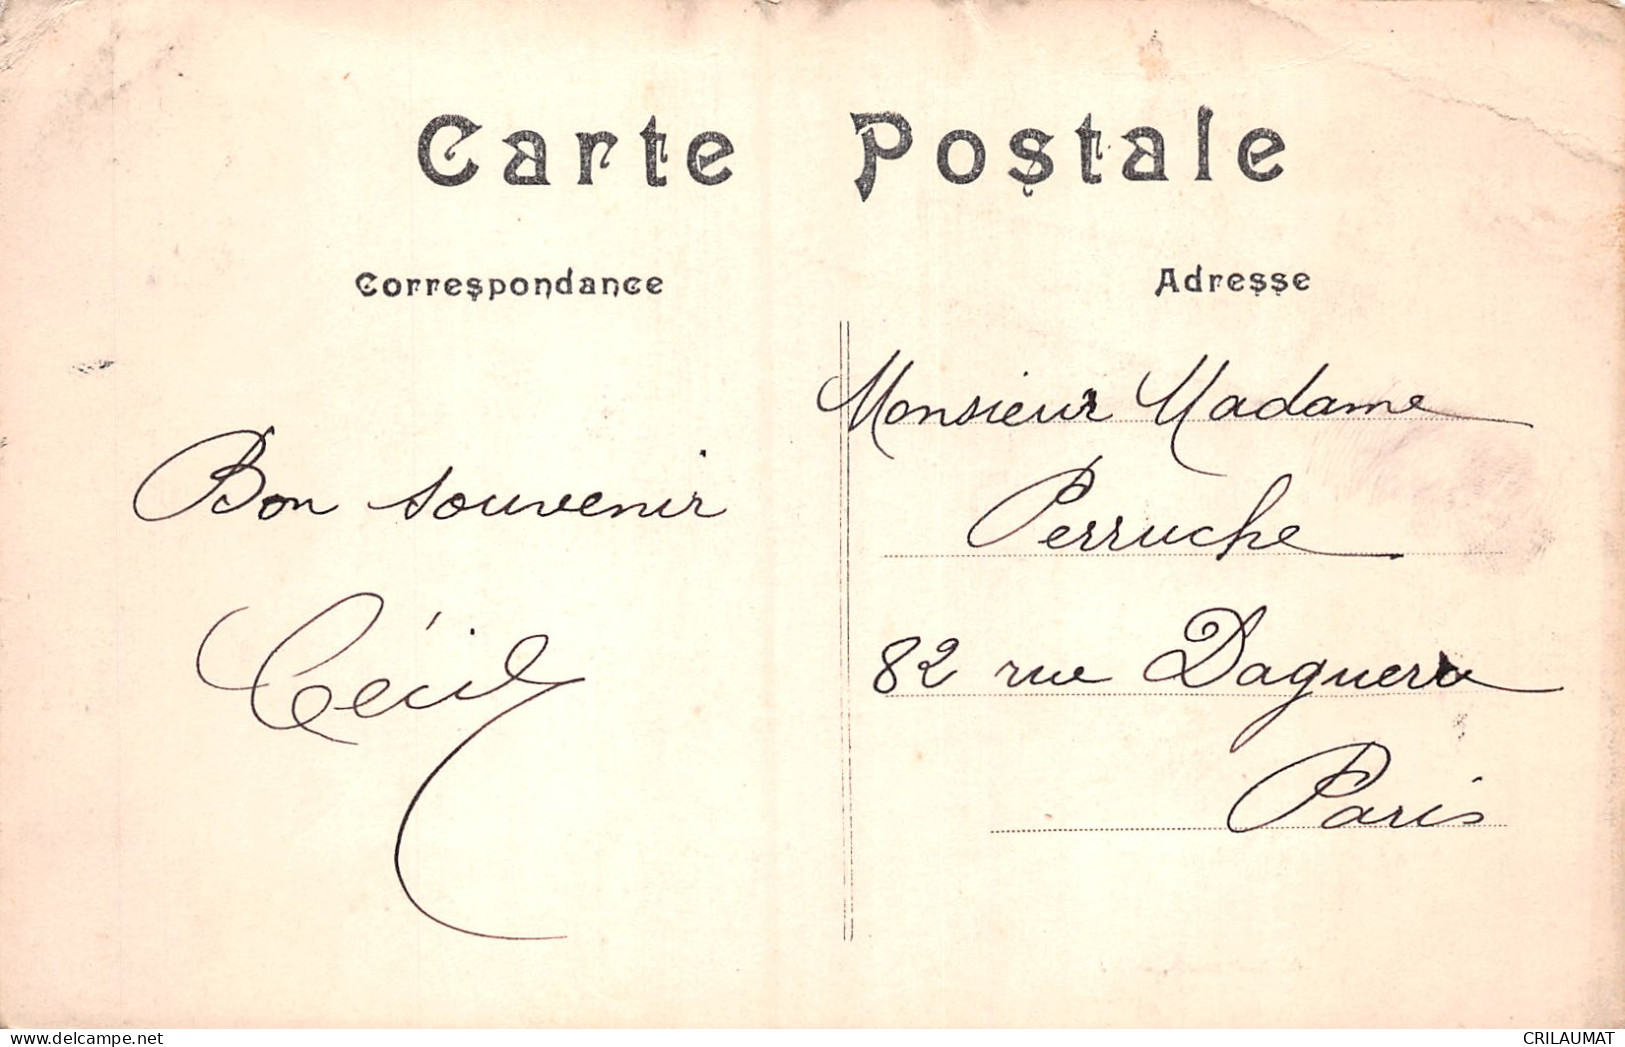 Carte Postale
Correspondance
Adresse
Bon souvenir
Cécile
Monsieur Madame
Perruche
82 rue Daguerre
Paris
https://www.delcampe.net
CRILAUMAT